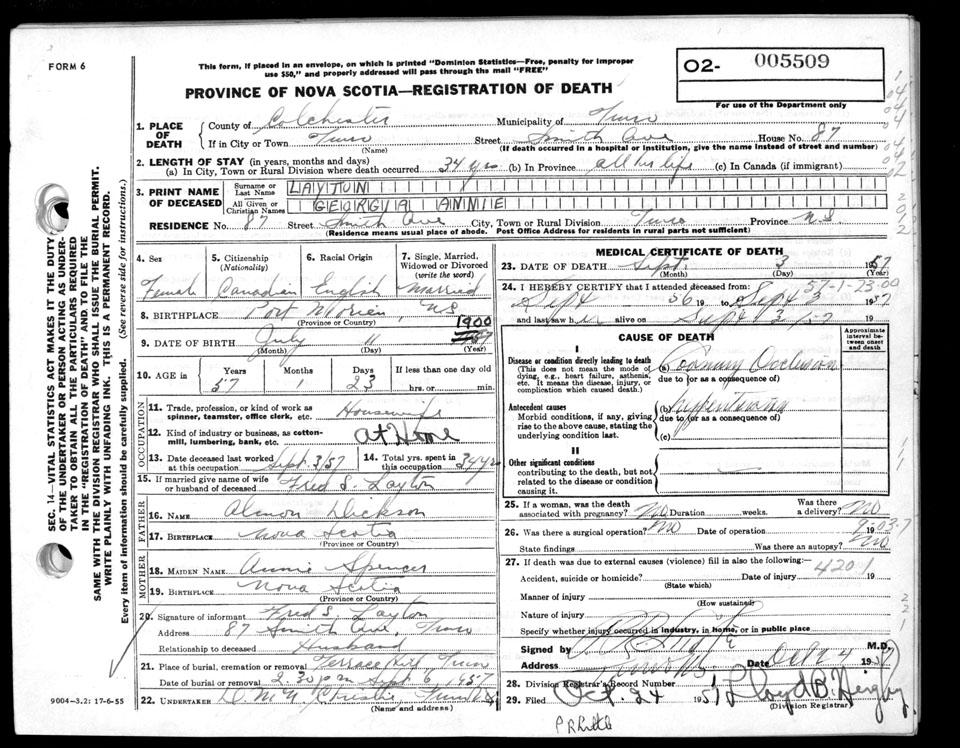 FORM 6
This form, if placed in an envelope, on which is printed "Dominion Statistics—Free, penalty for improper
use $50," and properly addressed will pass through the mail "FREE"
PROVINCE OF NOVA SCOTIA—REGISTRATION OF DEATH
O2- 005509
For use of the Department only
1. PLACE OF DEATH County of Colchester Municipality of Truro
If in City or Town Truro Street Smith Ave House No. 87
(Name) (If death occurred in a hospital or institution, give the name instead of street and number)
2. LENGTH OF STAY (in years, months and days)
(a) In City, Town or Rural Division where death occurred 34 yrs (b) In Province all her life (c) In Canada (if immigrant)
3. PRINT NAME OF DECEASED Surname or Last Name LAYTON
All Given or Christian Names GEORGIA ANNIE
RESIDENCE No. 87 Street Smith Ave City, Town or Rural Division Truro Province N.S.
(Residence means usual place of abode. Post Office Address for residents in rural parts not sufficient)
4. Sex Female
5. Citizenship (Nationality) Canadian
6. Racial Origin English
7. Single, Married, Widowed or Divorced (write the word) Married
8. BIRTHPLACE Port Morien, NS
(Province or Country)
9. DATE OF BIRTH July 11 1900
(Month) (Day) (Year)
10. AGE in Years 57 Months 1 Days 23 If less than one day old hrs. or min.
OCCUPATION
11. Trade, profession, or kind of work as spinner, teamster, office clerk, etc. Housewife
12. Kind of industry or business, as cotton-mill, lumbering, bank, etc. at Home
13. Date deceased last worked at this occupation Sept. 3/57 14. Total yrs. spent in this occupation 34 yrs
15. If married give name of wife or husband of deceased Fred S. Layton
FATHER
16. NAME Almon Dickson
17. BIRTHPLACE Nova Scotia
(Province or Country)
MOTHER
18. MAIDEN NAME Annie Spencer
19. BIRTHPLACE Nova Scotia
(Province or Country)
20. Signature of informant Fred S. Layton
Address 87 Smith Ave, Truro
Relationship to deceased Husband
21. Place of burial, cremation or removal Terrace Hill Truro
Date of burial or removal 2.30 pm Sept 6, 1957
22. UNDERTAKER Christie, Truro
(Name and address)
9004—3.2: 17-6-55
MEDICAL CERTIFICATE OF DEATH
23. DATE OF DEATH Sept. 3 1957
(Month) (Day) (Year)
57-1-23-00
24. I HEREBY CERTIFY that I attended deceased from:
Sept 56 19 to Sept 3 1957
and last saw her alive on Sept 3 19
CAUSE OF DEATH
Approximate interval between onset and death
I
Disease or condition directly leading to death
(This does not mean the mode of dying, e.g., heart failure, asthenia, etc. It means the disease, injury, or complication which caused death.)
(a) Coronary Occlusion
due to (or as a consequence of)
Antecedent causes
Morbid conditions, if any, giving rise to the above cause, stating the underlying condition last.
(b) hypertension
due to (or as a consequence of)
(c)
II
Other significant conditions
contributing to the death, but not related to the disease or condition causing it.
25. If a woman, was the death associated with pregnancy? No Duration weeks. Was there a delivery? No
26. Was there a surgical operation? No Date of operation 19
State findings Was there an autopsy? No
27. If death was due to external causes (violence) fill in also the following:—
4201
Accident, suicide or homicide? Date of injury 19
(State which)
Manner of injury
(How sustained)
Nature of injury
Specify whether injury occurred in industry, in home, or in public place
Signed by M.D.
Address Truro NS Date Oct 4 1957
28. Division Registrar's Record Number
29. Filed Oct. 24 1957
(Division Registrar)
SEC. 14—VITAL STATISTICS ACT MAKES IT THE DUTY
OF THE UNDERTAKER OR PERSON ACTING AS UNDER-
TAKER TO OBTAIN ALL THE PARTICULARS REQUIRED
IN THE "REGISTRATION OF DEATH" AND TO FILE THE
SAME WITH THE DIVISION REGISTRAR WHO SHALL ISSUE THE BURIAL PERMIT.
WRITE PLAINLY WITH UNFADING INK. THIS IS A PERMANENT RECORD.
Every item of information should be carefully supplied. (See reverse side for instructions.)